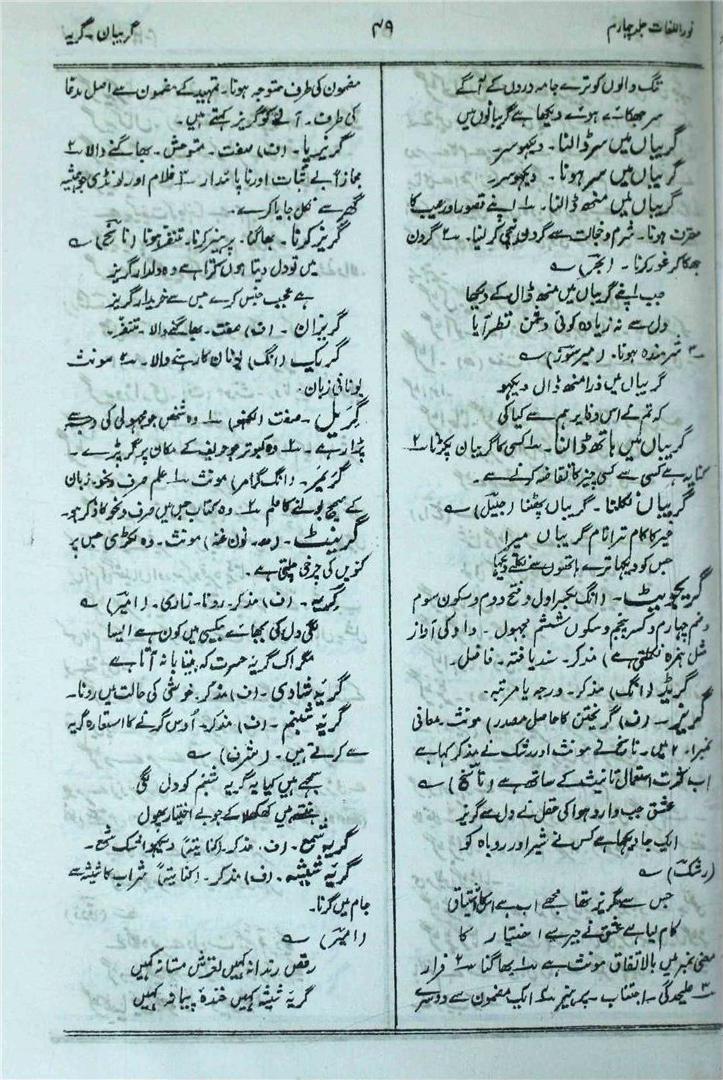 نور اللغات جلد چہارم
۴۹
گریبان - گریہ
تنگ دالوں کو ترے جامہ دروں کے آگے
سر جھکائے ہوئے دیکھا ہے گریبانوں میں
گریباں میں سر ڈالنا۔ دیکھو سر۔
گریباں میں سر ہونا۔ دیکھو سر۔
گریباں میں منھ ڈالنا۔ ؎۱ اپنے قصور اور عیب کا
مقرّ ہونا۔ شرم و خجالت سے گردن نیچی کر لینا۔ ؎۲ گردن
جھکا کر غور کرنا۔ (بحر) ؎
جب اپنے گریباں میں منھ ڈال کے دیکھا
دل سے نہ زیادہ کوئی دشمن نظر آیا
؎۳ شرمندہ ہونا۔ (میر سوز) ؎
گریباں میں ذرا منھ ڈال دیکھو
کہ تم نے اس وفا پر ہم سے کیا کی
گریباں میں ہاتھ ڈالنا۔ ؎۱ کسی کا گریبان پکڑنا ؎۲
کنایہ ہے کسی سے کسی چیز کا تقاضہ کرنے سے۔
گریباں نکلنا۔ گریباں پھٹنا (جلیل) ؎
خیر کا کام ترا نام گریباں میرا
جس کو دیکھا ترے ہاتھوں سے نکلتے دیکھا
گریجویٹ۔ (انگ بکسر اول و فتح دوم و سکون سوم
و ضم چہارم و کسر پنجم و سکون ششم مجہول۔ واو کی آواز
مثل ہمزہ نکلتی ہے) مذکر۔ سند یافتہ۔ فاضل۔
گریڈ (انگ) مذکر۔ درجہ یا مرتبہ۔
گریز۔ (ف) گریختن کا حاصل مصدر) مونث۔ معانی
نمبر ۱۔ ۲ میں۔ ناسخ نے مونث اور رشک نے مذکر کہا ہے
اب کثرت استعمال تانیث کے ساتھ ہے (ناسخ) ؎
عشق جب وارد ہوا کی عقل نے دل سے گریز
ایک جا دیکھا ہے کس نے شیر اور روباہ کو
(رشک) ؎
جس سے گریز تھا مجھے اب ہے اسکا اشتیاق
کام لیا ہے عشق نے جبر سے اختیار کا
معنی نمبر میں بالاتفاق مونث ہے ؎۱ بھاگنا ؎۲ فرار
؎۳ علیحدگی۔ اجتناب۔ پرہیز ؎۴ ایک مضمون سے دوسرے
مضمون کی طرف متوجہ ہونا۔ تمہید کے مضمون سے اصل مدعا
کی طرف۔ آنے کو گریز کہتے ہیں۔
گریز پا۔ (ف) صفت۔ متوحش۔ بھاگنے والا ؎۲
مجازاً بے ثبات اور ناپائدار ؎۳ غلام اور لونڈی جو ہمیشہ
گھر سے نکل جایا کرے۔
گریز کرنا۔ بھاگنا۔ پرہیز کرنا۔ متنفر ہونا (ناسخ) ؎
میں تو دل دیتا ہوں کرتا ہے وہ دلدار گریز
ہے عجیب جنس کرے جس سے خریدار گریز
گریزان۔ (ف) صفت۔ بھاگنے والا۔ متنفر۔
گریک (انگ) یونان کا رہنے والا۔ ؎۲ مونث
یونانی زبان۔
گریل۔ صفت (لکھنؤ) ؎۱ وہ شخص جو مجہولی کی وجہ سے
پڑا رہے۔ ؎۲ وہ کبوتر جو حریف کے مکان پر گر پڑے۔
گریمر۔ (انگ گرامر) مونث ؎۱ علم صرف و نحو۔ زبان
کے صحیح بولنے کا علم ؎۲ وہ کتاب جس میں صرف و نحو کا ذکر ہو۔
گرینٹ۔ (ھ۔ نون غنہ) مونث۔ وہ لکڑی جس پر
کنویں کی چرخی چلتی ہے۔
گریہ۔ (ف) مذکر۔ رونا۔ زاری۔ (امیر) ؎
لگی دل کی بجھائے بیکسی میں کون ہے ایسا
مگر اک گریہ حسرت کہ بیتابانہ آتا ہے
گریہ شادی۔ (ف) مذکر۔ خوشی کی حالت میں رونا۔
گریہ شبنم۔ (ف) مذکر۔ اوس گرنے کا استعارہ گریہ
سے کرتے ہیں۔ (شرف) ؎
سمجھے ہیں کیا یہ گریہ شبنم کو دل لگی
ہنستے ہیں کھلکھلا کے جو بے اختیار پھول
گریہ شمع۔ (ف) مذکر۔ (کنایتہً) دیکھو اشک شمع۔
گریہ شیشہ۔ (ف) مذکر۔ (کنایتہً) شراب کا شیشہ سے
جام میں گرنا۔
(امیر) ؎
رقص رندانہ کہیں لغزش مستانہ کہیں
گریہ شیشہ کہیں خندہ پیمانہ کہیں